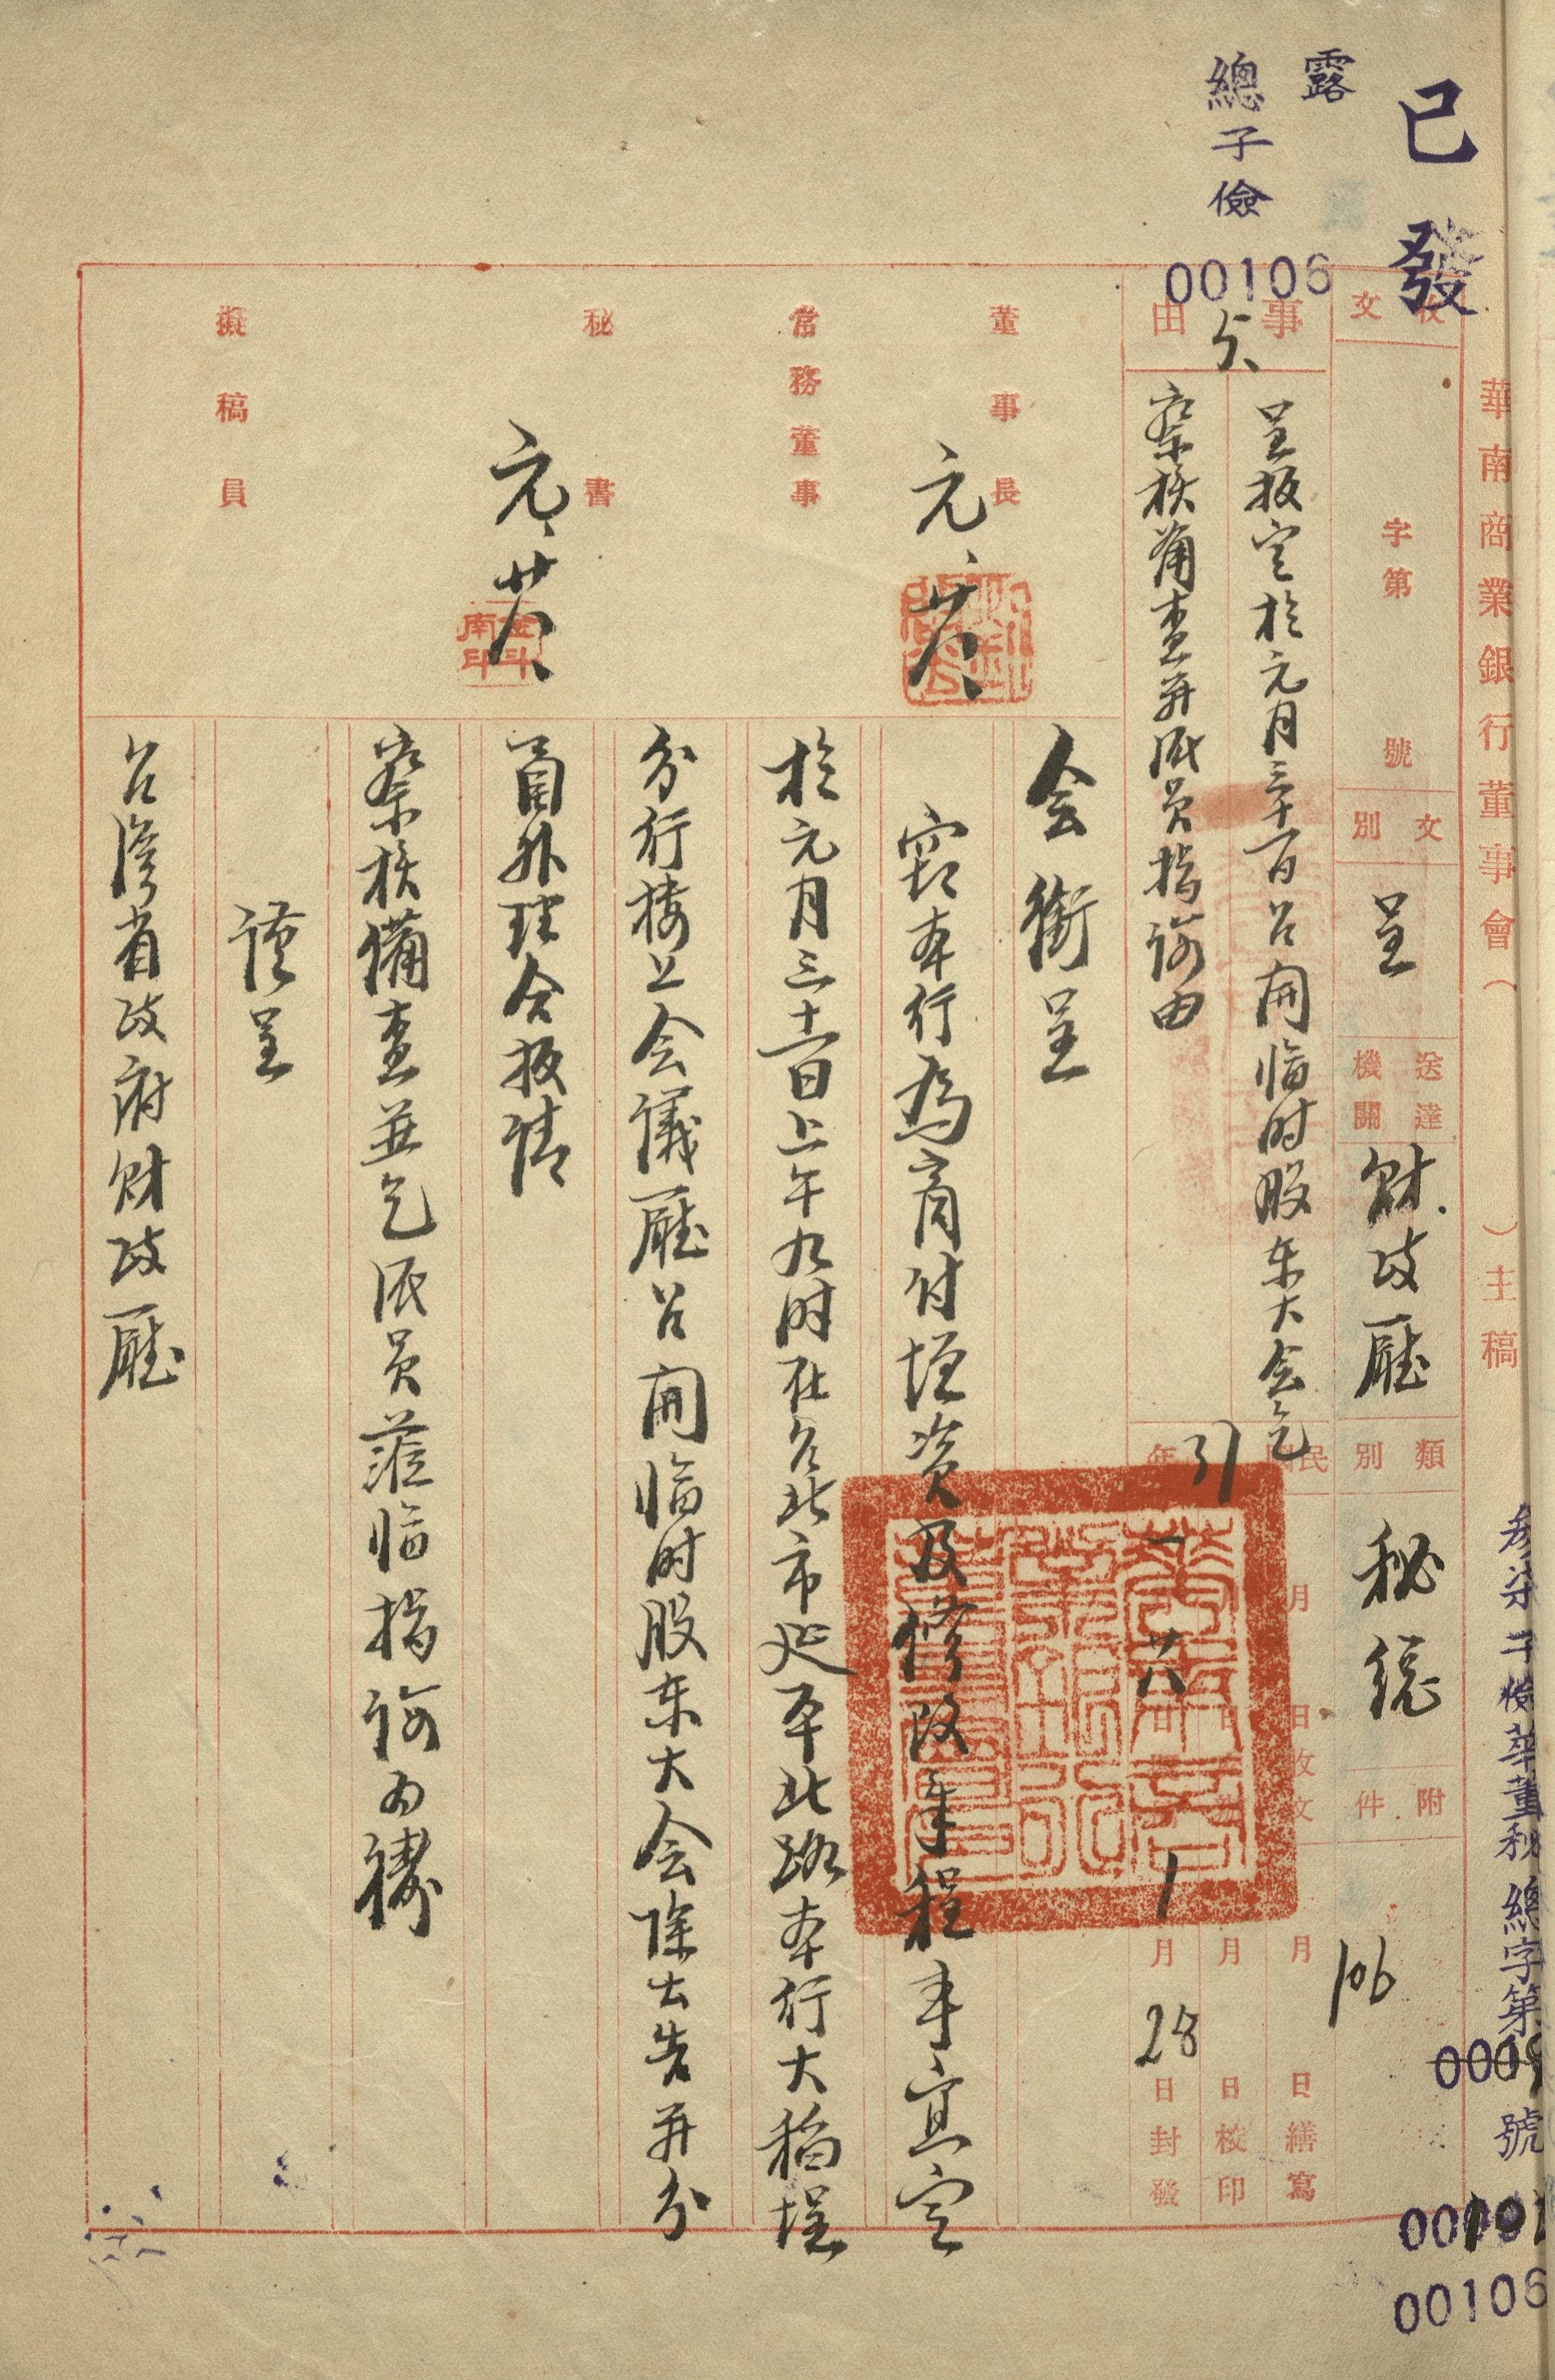 已發
露
總子儉
00106
華南商業銀行董事會（　　）主稿
參柒子儉華董秘總字第
號
00106
收文
字第　號
文別
呈
送達機關
財政廳
類別
秘總
附件
106
事由
呈報定於元月三十一日召開臨时股东大会乞
察核備查并派員指導由
民國
年
31
月
日收文
一
廿八
1
月
28
日封發
月
日校印
月
日繕寫
董事長
元、廿八、
常務董事
秘書
元、廿八、
金斗南印
擬稿員
会銜呈
窃本行為商付增資及修改章程事宜定
於元月三十一日上午九时在台北市延平北路本行大稻埕
分行楼上会議廳召開臨时股东大会除公告并分
函外理合报請
察核備查並乞派員蒞臨指導為禱
謹呈
台湾省政府财政廳